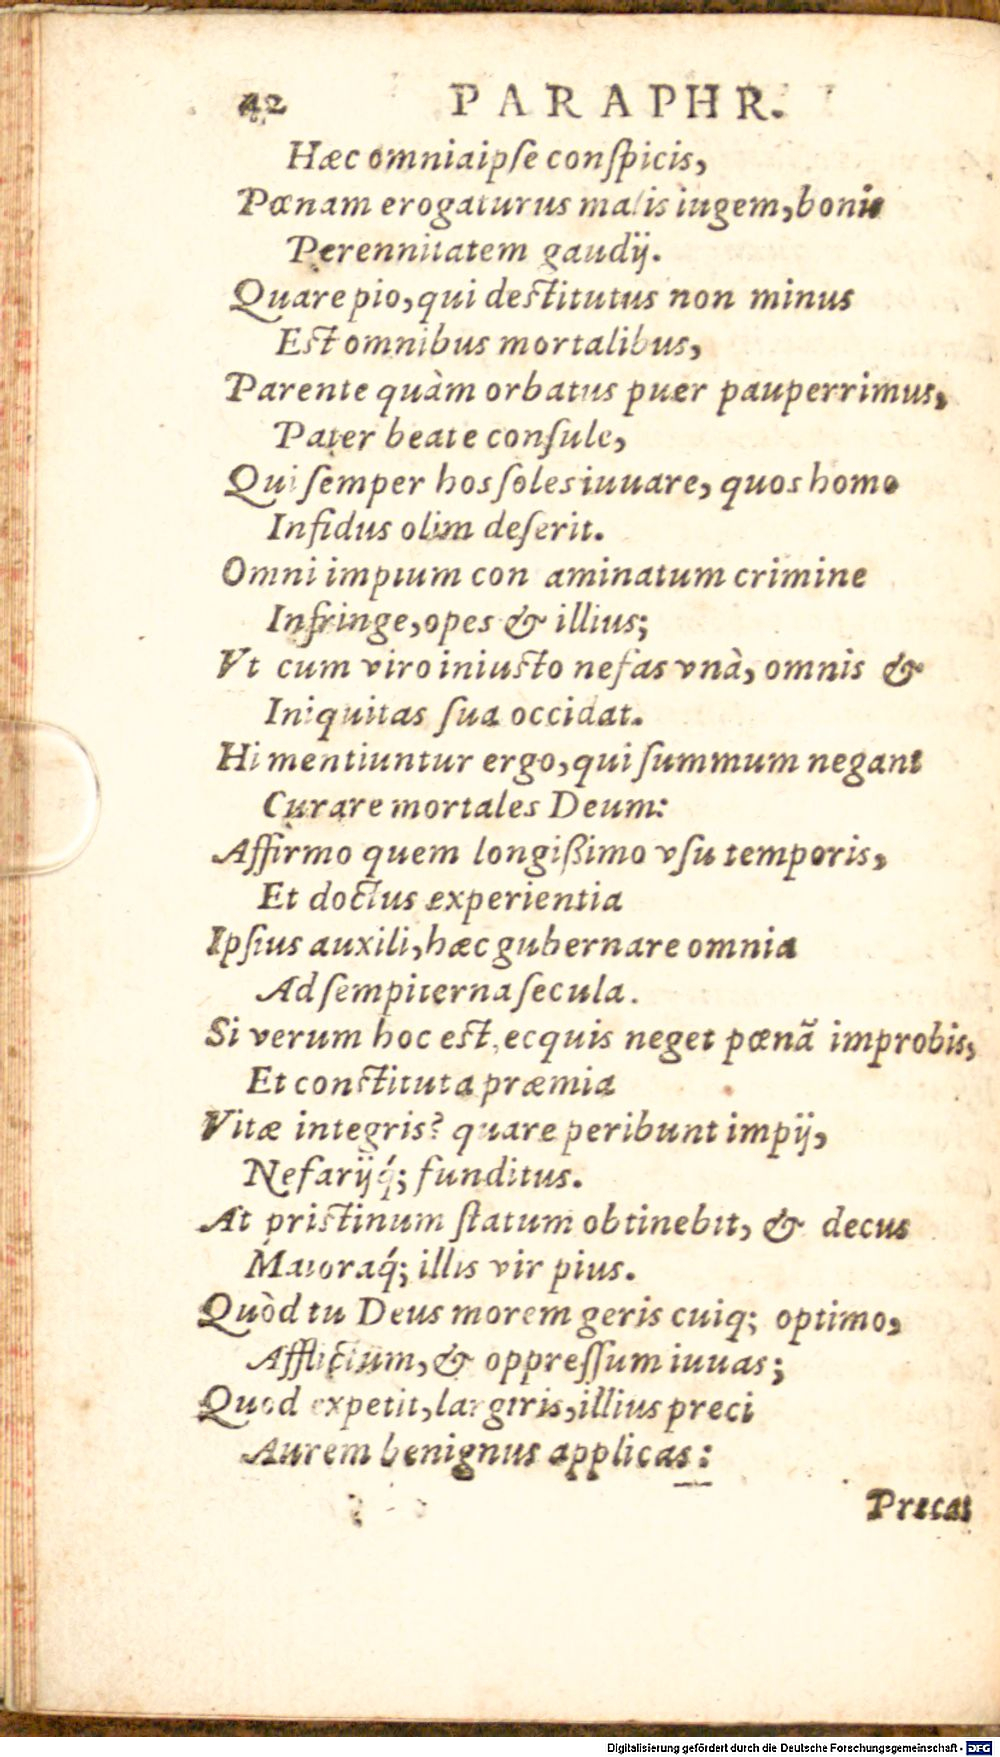 42 PARAPHR.
Hæc omnia ipſe conſpicis,
Pœnam erogaturus malis iugem, bonis
Perennitatem gaudij.
Quare pio, qui deſtitutus non minus
Eſt omnibus mortalibus,
Parente quàm orbatus puer pauperrimus,
Pater beate conſule,
Qui ſemper hos ſoles iuuare, quos homo
Infidus olim deſerit.
Omni impium con aminatum crimine
Infringe, opes & illius;
Vt cum viro iniuſto nefas vnà, omnis &
Iniquitas ſua occidat.
Hi mentiuntur ergo, qui ſummum negant
Curare mortales Deum:
Affirmo quem longißimo vſu temporis,
Et doctus experientia
Ipſius auxili, hæc gubernare omnia
Ad ſempiterna ſecula.
Si verum hoc eſt, ecquis neget pœnã improbis,
Et conſtituta præmia
Vitæ integris? quare peribunt impij,
Nefarijq́; funditus.
At priſtinum ſtatum obtinebit, & decus
Maioraq́; illis vir pius.
Quòd tu Deus morem geris cuiq; optimo,
Afflictum, & oppreſſum iuuas;
Quod expetit, largiris, illius preci
Aurem benignus applicas:
Precat
Digitalisierung gefördert durch die Deutsche Forschungsgemeinschaft - DFG